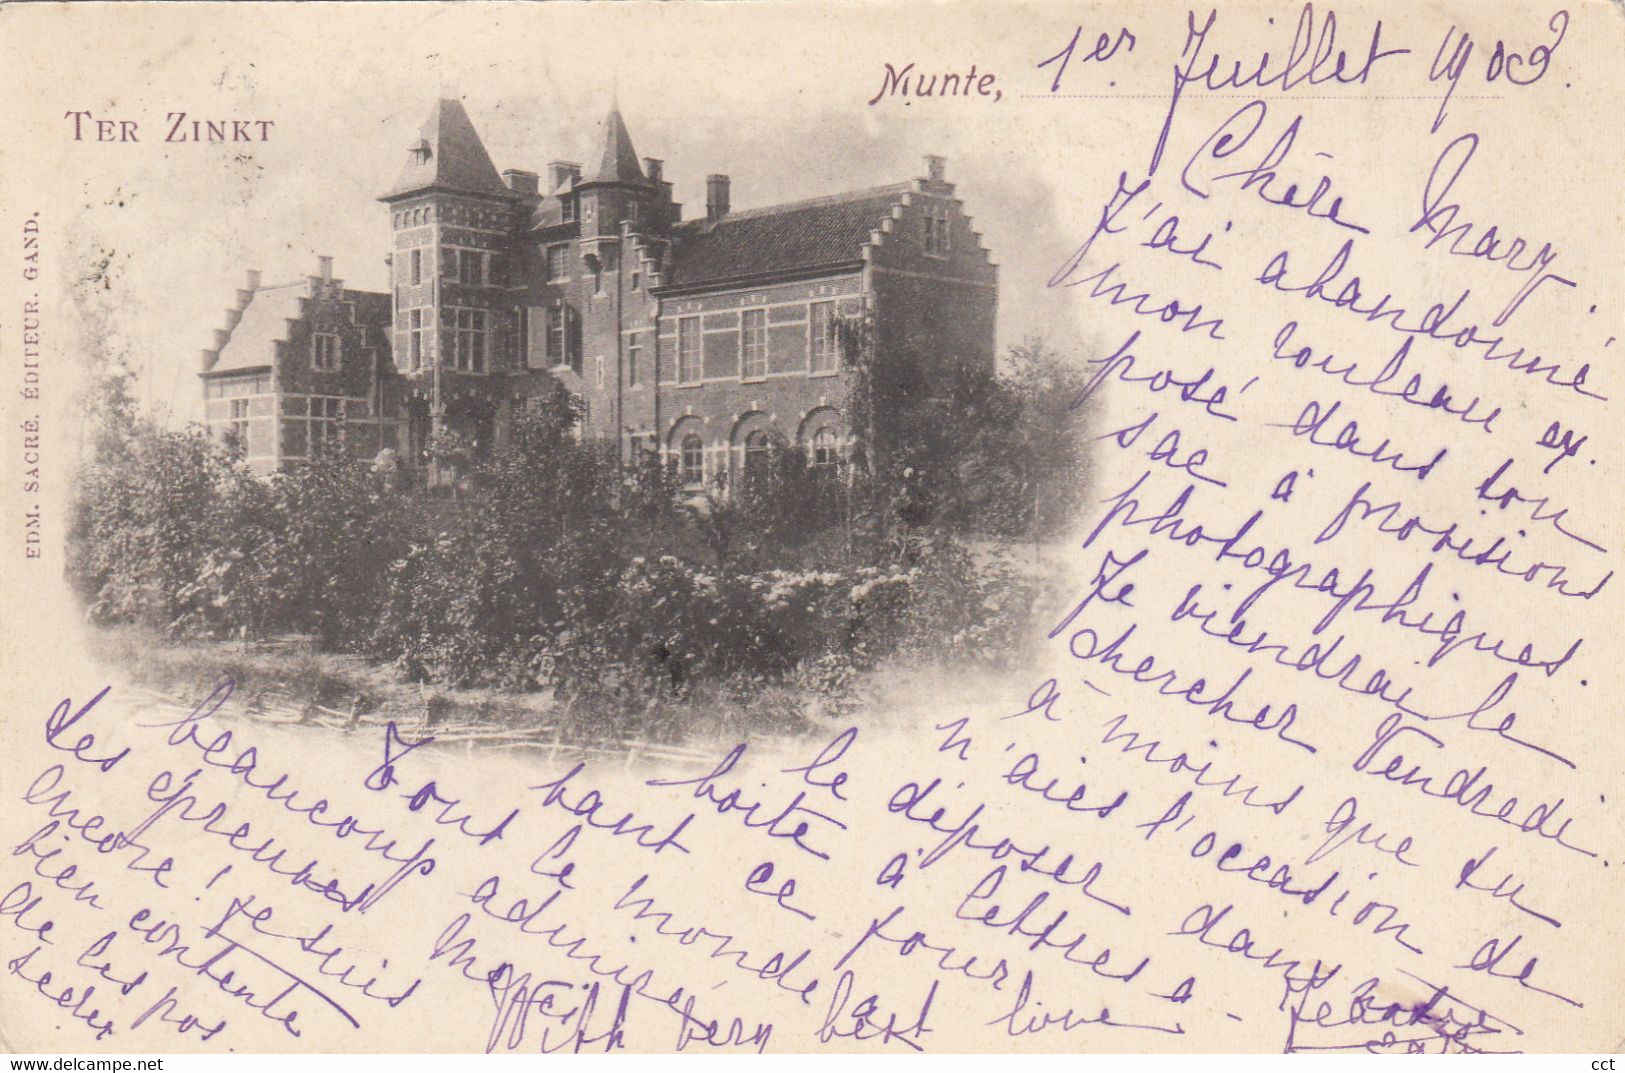 TER ZINKT
EDM. SACRÉ. ÉDITEUR. GAND.
Munte, 1er Juillet 1903.
Chère Mary.
J'ai abandonné
mon rouleau ex.
posé dans ton
sac à provisions
photographiques.
Je viendrai le
chercher Vendredi.
à moins que tu
n'aies l'occasion de
le déposer dans
boîte à lettres a-
vant ce jour
Tout le monde a
beaucoup admiré
les épreuves
encore! Je suis
bien contente
de les pos
séder
With very best love -
cct